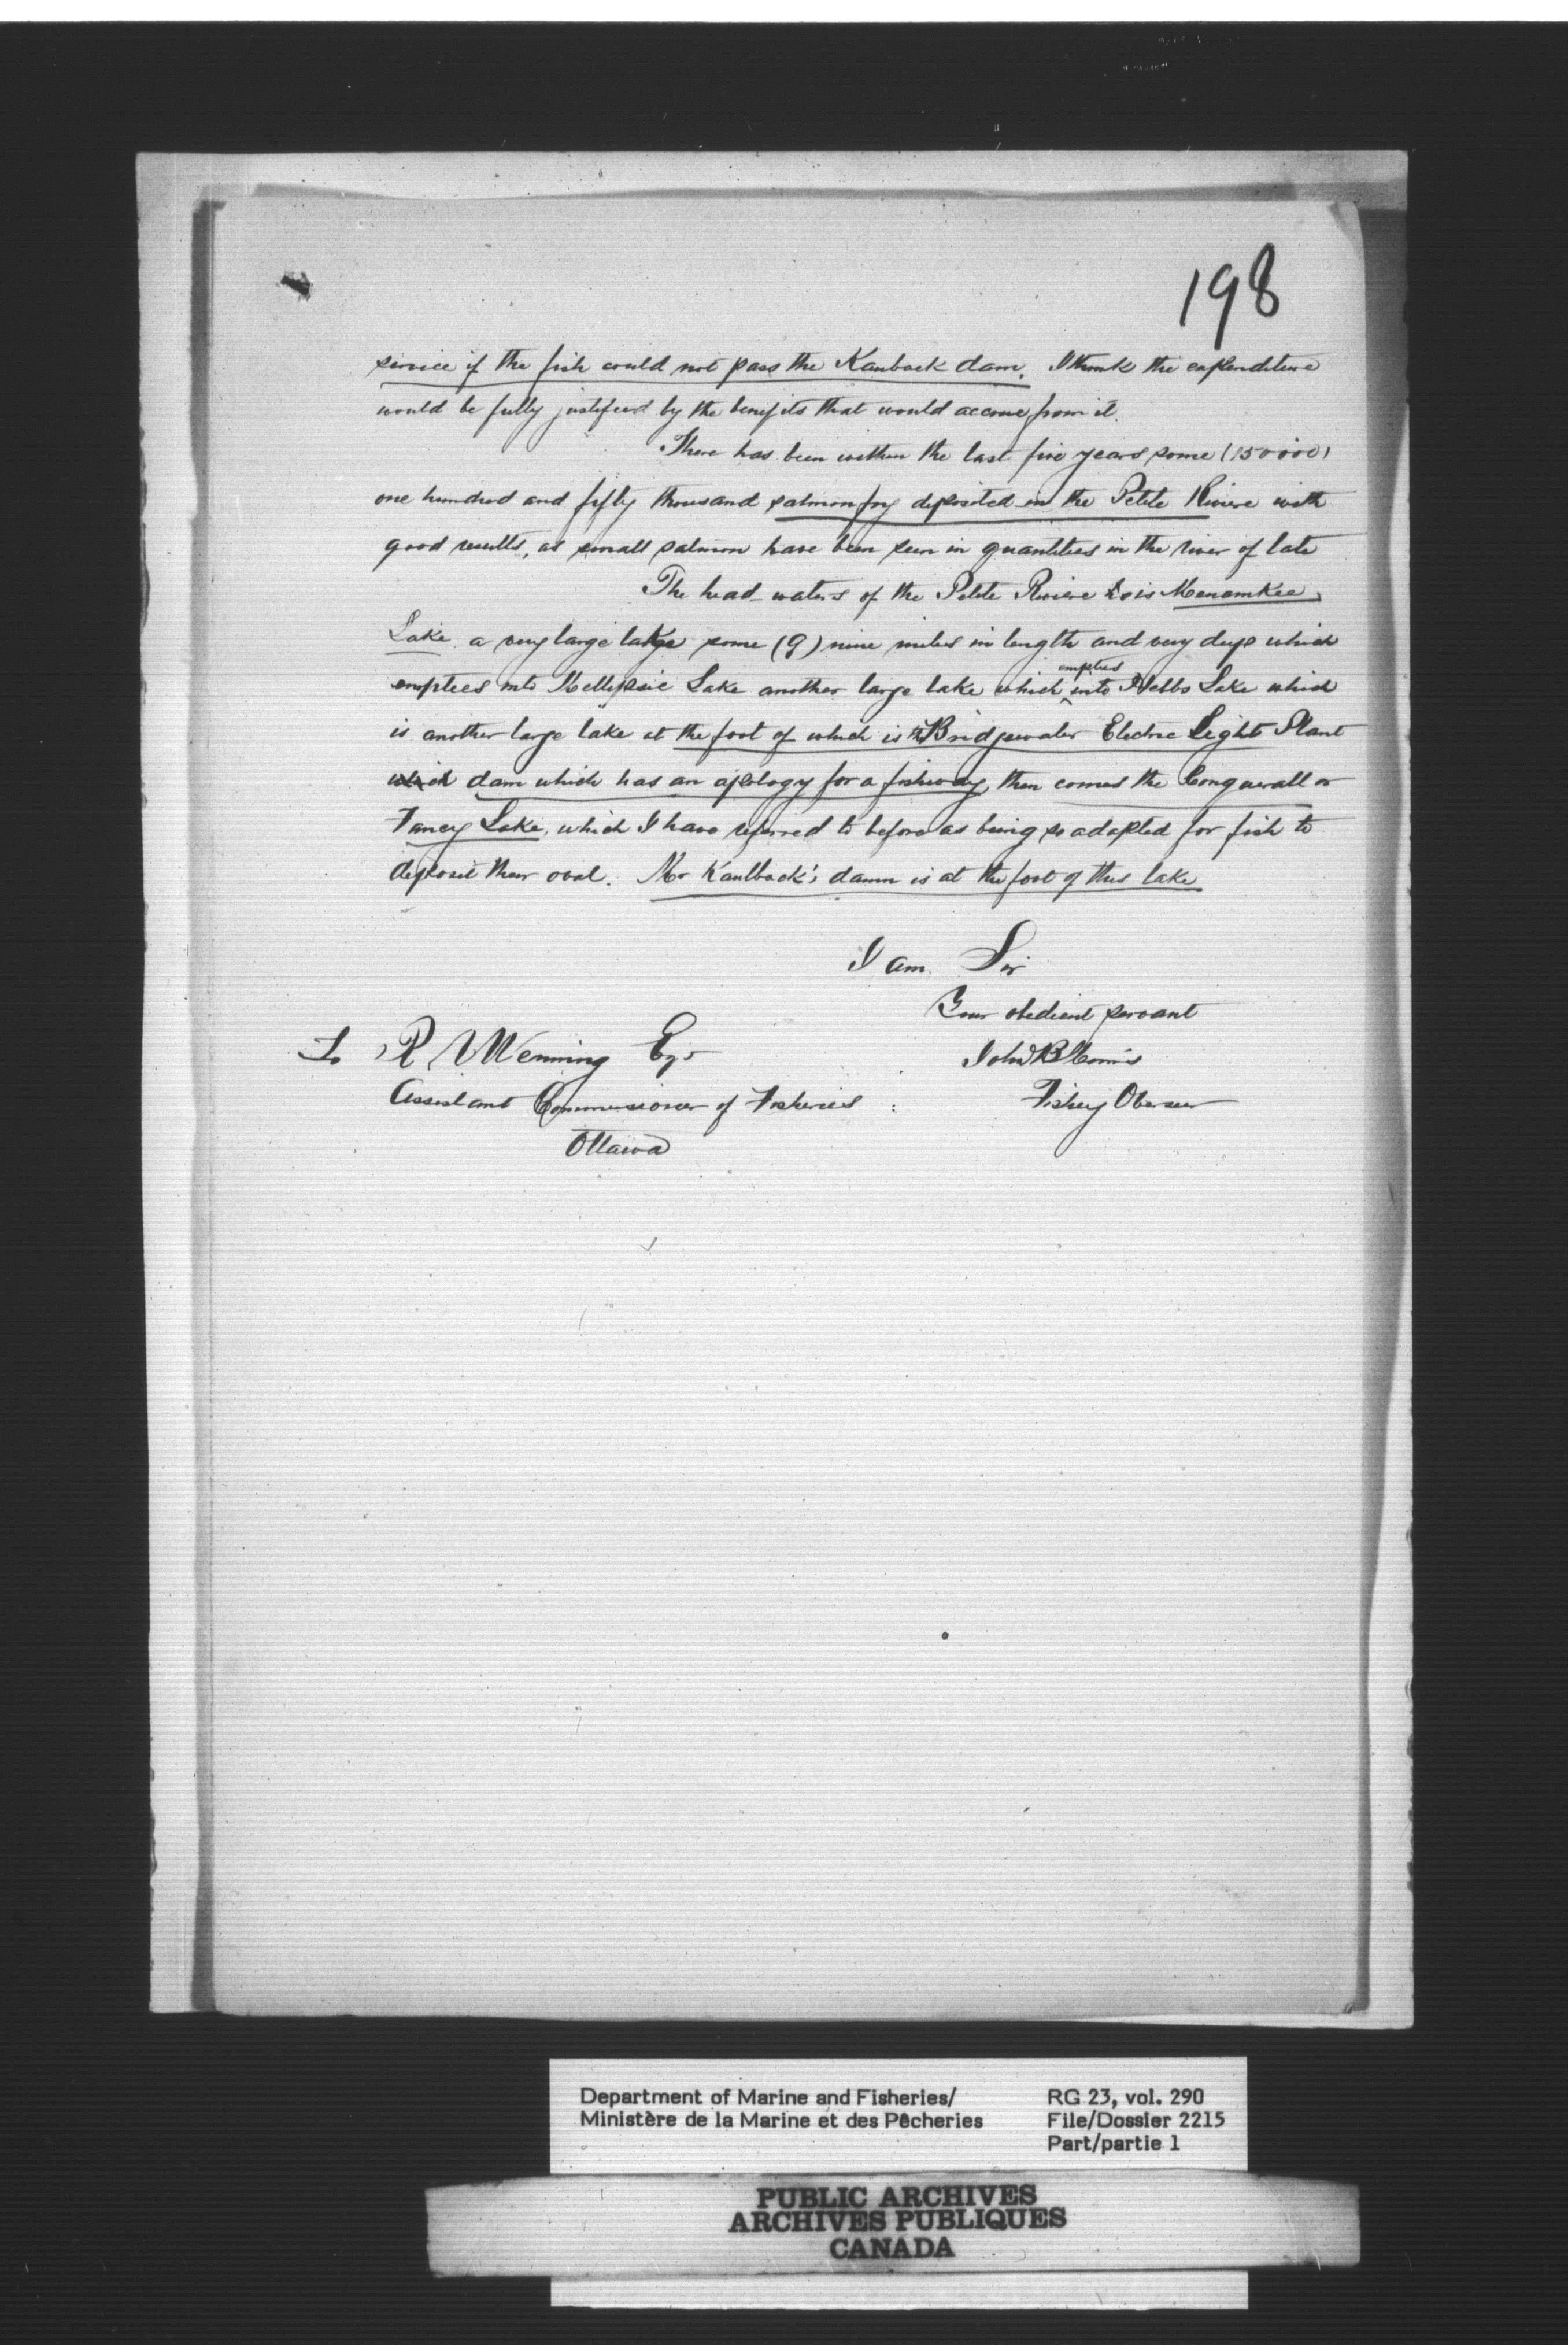 198
service if the fish could not pass the Kauback dam. I think the expenditure
would be fully justified by the benefits that would accrue from it.
There has been within the last five years some (150000)
one hundred and fifty thousand salmon fry deposited in the Petite Riviere with
good results, as small salmon have been seen in quantities in the river of late
The head waters of the Petite Riviere is Menamkee
Lake a very large lake some (9) nine miles in length and very deep which
empties into Mellipsic Lake another large lake which empties into Hebbs Lake which
is another large lake at the foot of which is the Bridgewater Electric Light Plant
which dam which has an apology for a fishway, then comes the Conquerall or
Fancy Lake, which I have referred to before as being so adapted for fish to
deposit their oval. Mr Kaulback's damn is at the foot of this lake
I am Sir
Your obedient servant
To R Venning Esqr
John B
Assistant Commissioner of Fisheries
Fishery Oberseer
Ottawa
Department of Marine and Fisheries/
Ministère de la Marine et des Pêcheries
RG 23, vol. 290
File/Dossier 2215
Part/partie 1
PUBLIC ARCHIVES
ARCHIVES PUBLIQUES
CANADA